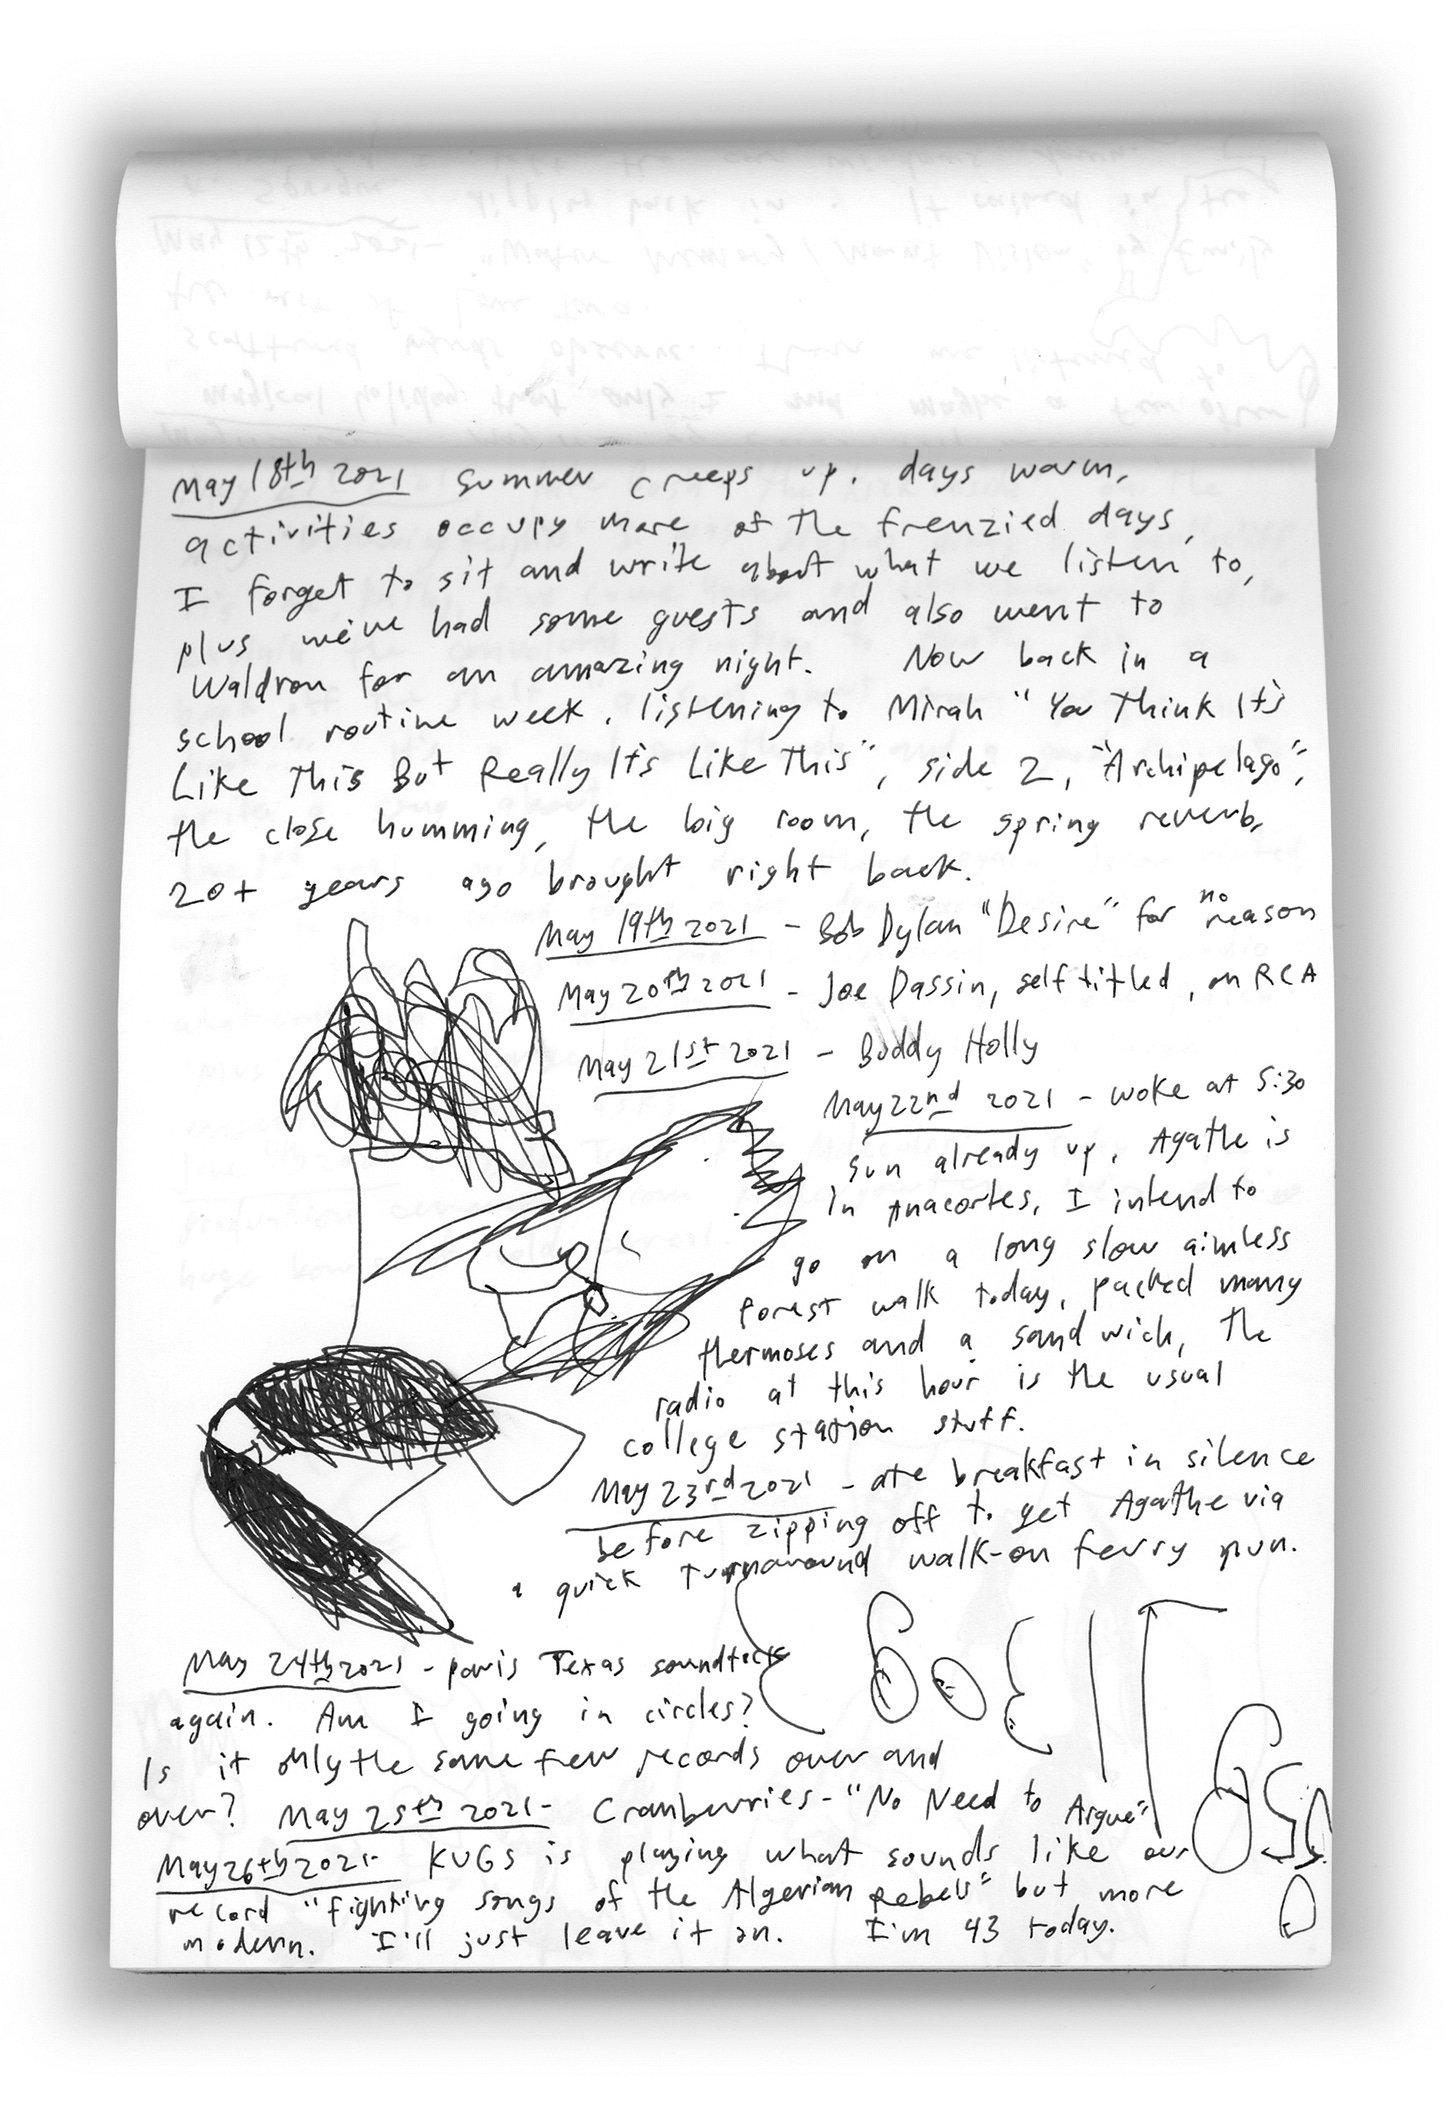 May 18th 2021 Summer creeps up. days warm,
activities occupy more of the frenzied days,
I forget to sit and write about what we listen to,
plus we've had some guests and also went to
Waldron for an amazing night. Now back in a
school routine week. listening to Mirah "You Think It's
Like This But Really It's Like This", side 2, "Archipelago",
the close humming, the big room, the spring reverb,
20+ years ago brought right back.
May 19th 2021 - Bob Dylan "Desire" for no reason
May 20th 2021 - Joe Dassin, self titled, on RCA
May 21st 2021 - Buddy Holly
May 22nd 2021 - woke at 5:30
sun already up, Agathe is
in Anacortes, I intend to
go on a long slow aimless
forest walk today, packed many
thermoses and a sandwich, the
radio at this hour is the usual
college station stuff.
May 23rd 2021 - ate breakfast in silence
before zipping off to get Agathe via
a quick turnaround walk-on ferry run.
May 24th 2021 - Paris Texas soundtrack
again. Am I going in circles?
Is it only the same few records over and
over? May 25th 2021 - Cranberries - "No Need to Argue"
May 26th 2021 - KUGS is playing what sounds like our
record "fighting songs of the Algerian Rebels" but more
modern. I'll just leave it on. I'm 43 today.